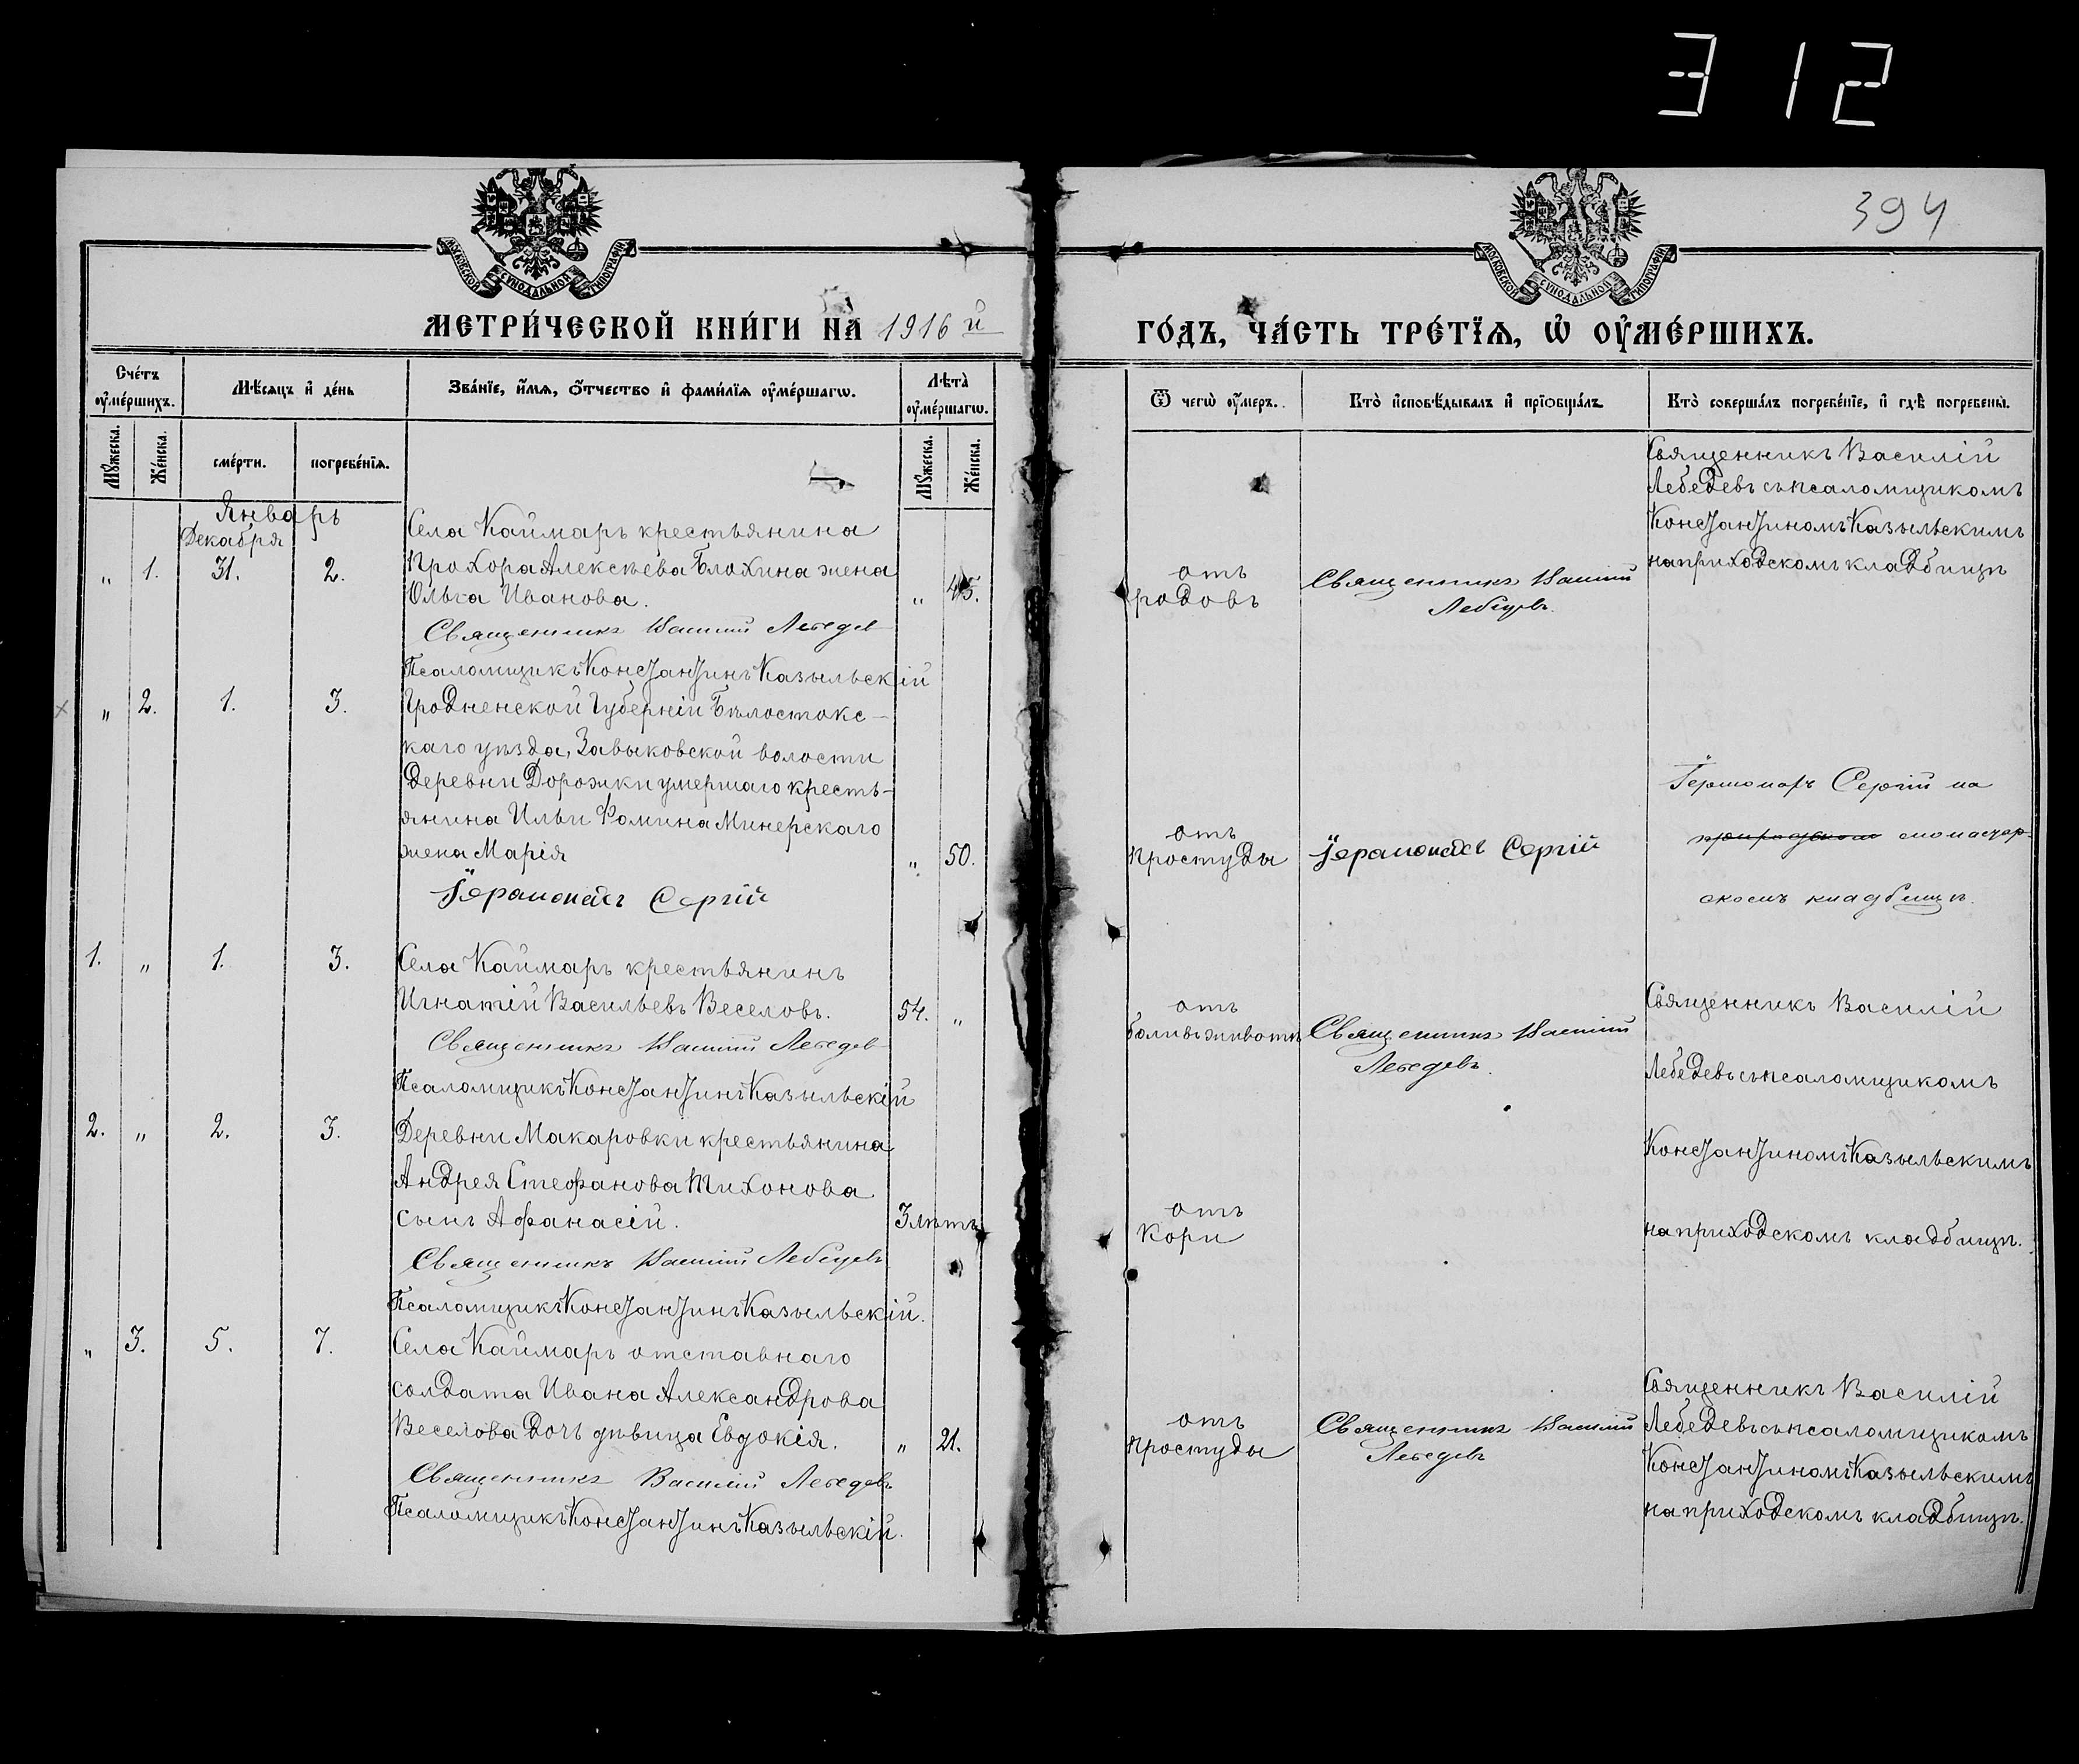 312
394
МОСКОВСКОЙ СѴНОДАЛЬНОЙ ТИПОГРАФІИ
МОСКОВСКОЙ СѴНОДАЛЬНОЙ ТИПОГРАФІИ
МЕТРИ́ЧЕСКОЙ КНИ́ГИ НА̀ 1916 й
ГО́ДЪ, ЧА́СТЬ ТРЕ́ТЇѦ, Ѡ҆ ОУ҆МЕ́РШИХЪ.
Сче́тъ оу҆ме́ршихъ.
Мꙋ́жеска.
Же́нска.
Мѣ́сѧцъ и҆ де́нь
сме́рти.
погребе́нїѧ.
Зва́нїе, и҆́мѧ, ѻ҆́тчество и҆ фами́лїѧ оу҆ме́ршагѡ.
Лѣ́та оу҆ме́ршагѡ.
Мꙋ́жеска.
Же́нска.
Ѿ чегѡ̀ оу҆́меръ.
Кто̀ и҆сповѣ́дывалъ и҆ прїѡбща́лъ
Кто̀ соверша́лъ погребе́нїе, и҆ гдѣ̀ погребены̀.
Январь
Декабря
„ 1. 31. 2.
Села Каймаръ крестьянина
Прохора Алексѣева Блохина жена
Ольга Иванова. „ 45.
Священникъ Василій Лебедев
Псаломщикъ Константинъ Казыльскій
отъ
родовъ
Священникъ Василій
Лебедевъ.
Священникъ Василій
Лебедевъ съ псаломщикомъ
Константиномъ Казыльскимъ
на приходскомъ кладбищѣ
х „ 2. 1. 3.
Гродненской Губерніи Бѣлостокс-
каго уѣзда, Завыковской волости
Деревни Дорожки умершаго кресть-
янина Ильи Фомина Минерскаго
жена Марія „ 50.
Іеромонахъ Сергій
отъ
простуды
Іеромонахъ Сергій
Іеромонахъ Сергій на
приходском монастыр-
скомъ кладбищѣ.
1. „ 1. 3.
Села Каймаръ крестьянинъ
Игнатій Васильевъ Веселовъ. 54. „
Священникъ Василій Лебедев
Псаломщикъ Константинъ Казыльскій
отъ
боли въ животѣ
Священникъ Василій
Лебедевъ.
Священникъ Василій
Лебедевъ съ псаломщикомъ
Константиномъ Казыльскимъ
на приходскомъ кладбищѣ.
2. „ 2. 3.
Деревни Макаровки крестьянина
Андрея Стефанова Тихонова
сынъ Афанасій. 3 лѣтъ
Священникъ Василій Лебедевъ
Псаломщикъ Константинъ Казыльскій.
отъ
кори
„ 3. 5. 7.
Села Каймаръ отставнаго
солдата Ивана Александрова
Веселова дочь дѣвица Евдокія. „ 21.
Священникъ Василій Лебедевъ
Псаломщикъ Константинъ Казыльскій.
отъ
простуды
Священникъ Василій
Лебедевъ
Священникъ Василій
Лебедевъ съ псаломщикомъ
Константиномъ Казыльскимъ
на приходскомъ кладбищѣ.